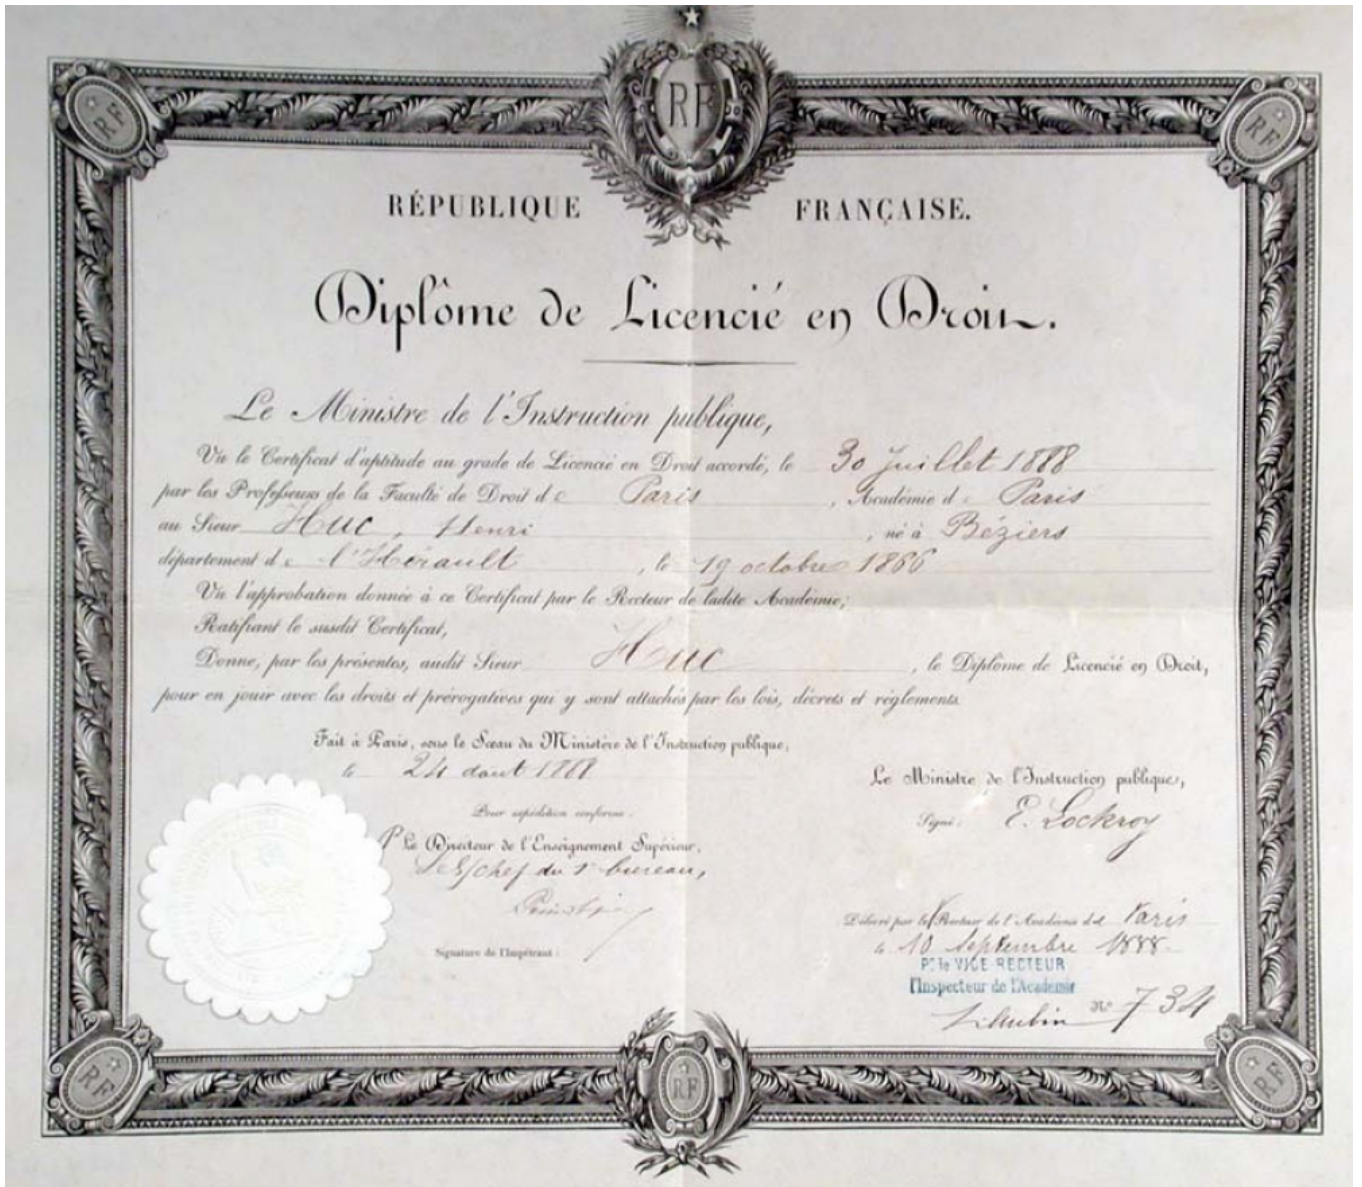 RF
RF RF
RÉPUBLIQUE FRANÇAISE.
Diplôme de Licencié en Droit.
Le Ministre de l'Instruction publique,
Vu le Certificat d'aptitude au grade de Licencié en Droit accordé, le 30 Juillet 1888
par les Professeurs de la Faculté de Droit de Paris, Académie d Paris
au Sieur Huc, Henri, né à Béziers
département de l'Hérault, le 19 octobre 1866
Vu l'approbation donnée à ce Certificat par le Recteur de ladite Académie;
Ratifiant le susdit Certificat,
Donne, par les présentes, audit Sieur Huc, le Diplôme de Licencié en Droit,
pour en jouir avec les droits et prérogatives qui y sont attachés par les lois, décrets et règlements.
Fait à Paris, sous le Sceau du Ministère de l'Instruction publique,
le 24 août 1888
Pour expédition conforme.
Pr Le Directeur de l'Enseignement Supérieur,
chef du 1er bureau,
Signature de l'Impétrant :
Le Ministre de l'Instruction publique,
Signé : E. Lockroy
Délivré par le Recteur de l'Académie de Paris
le 10 Septembre 1888.
Pr. le VICE RECTEUR
l'Inspecteur de l'Académie
No 734
RF RF RF